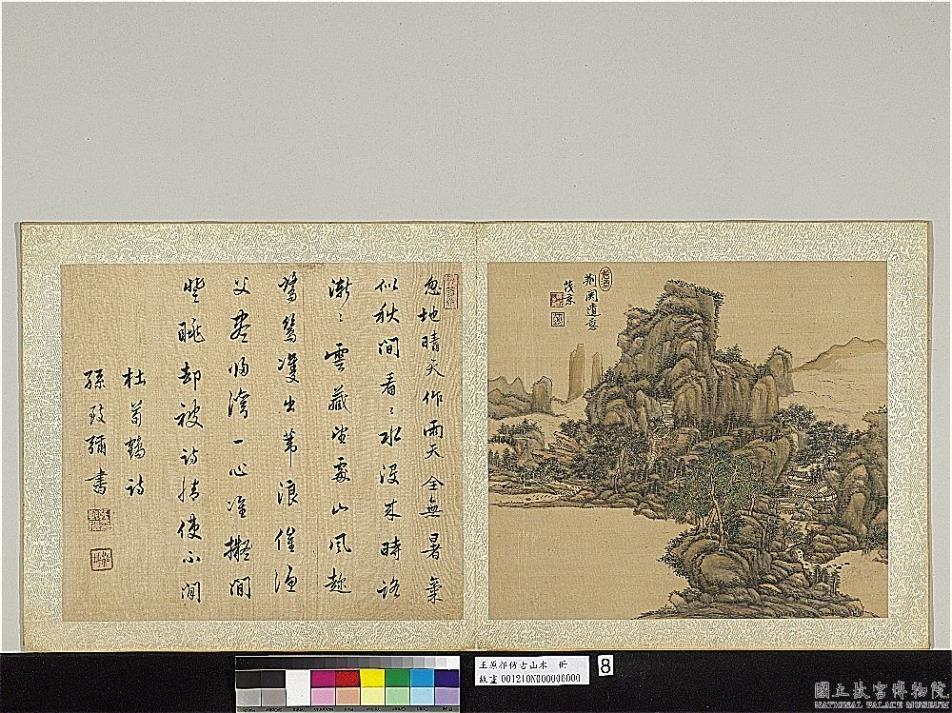 荊關遺意
茂京
忽地晴天作雨天全無暑氣
似秋間看〻水沒來時路
漸〻雲藏望處山風趁
鷺鷥雙出葦浪催漁
父盡歸灣一心准擬閒
登眺却被詩情使不閒
杜荀鶴詩
孫致彌書
王原祁仿古山水 冊
故畫 001210N000000000
8
國立故宮博物院
NATIONAL PALACE MUSEUM